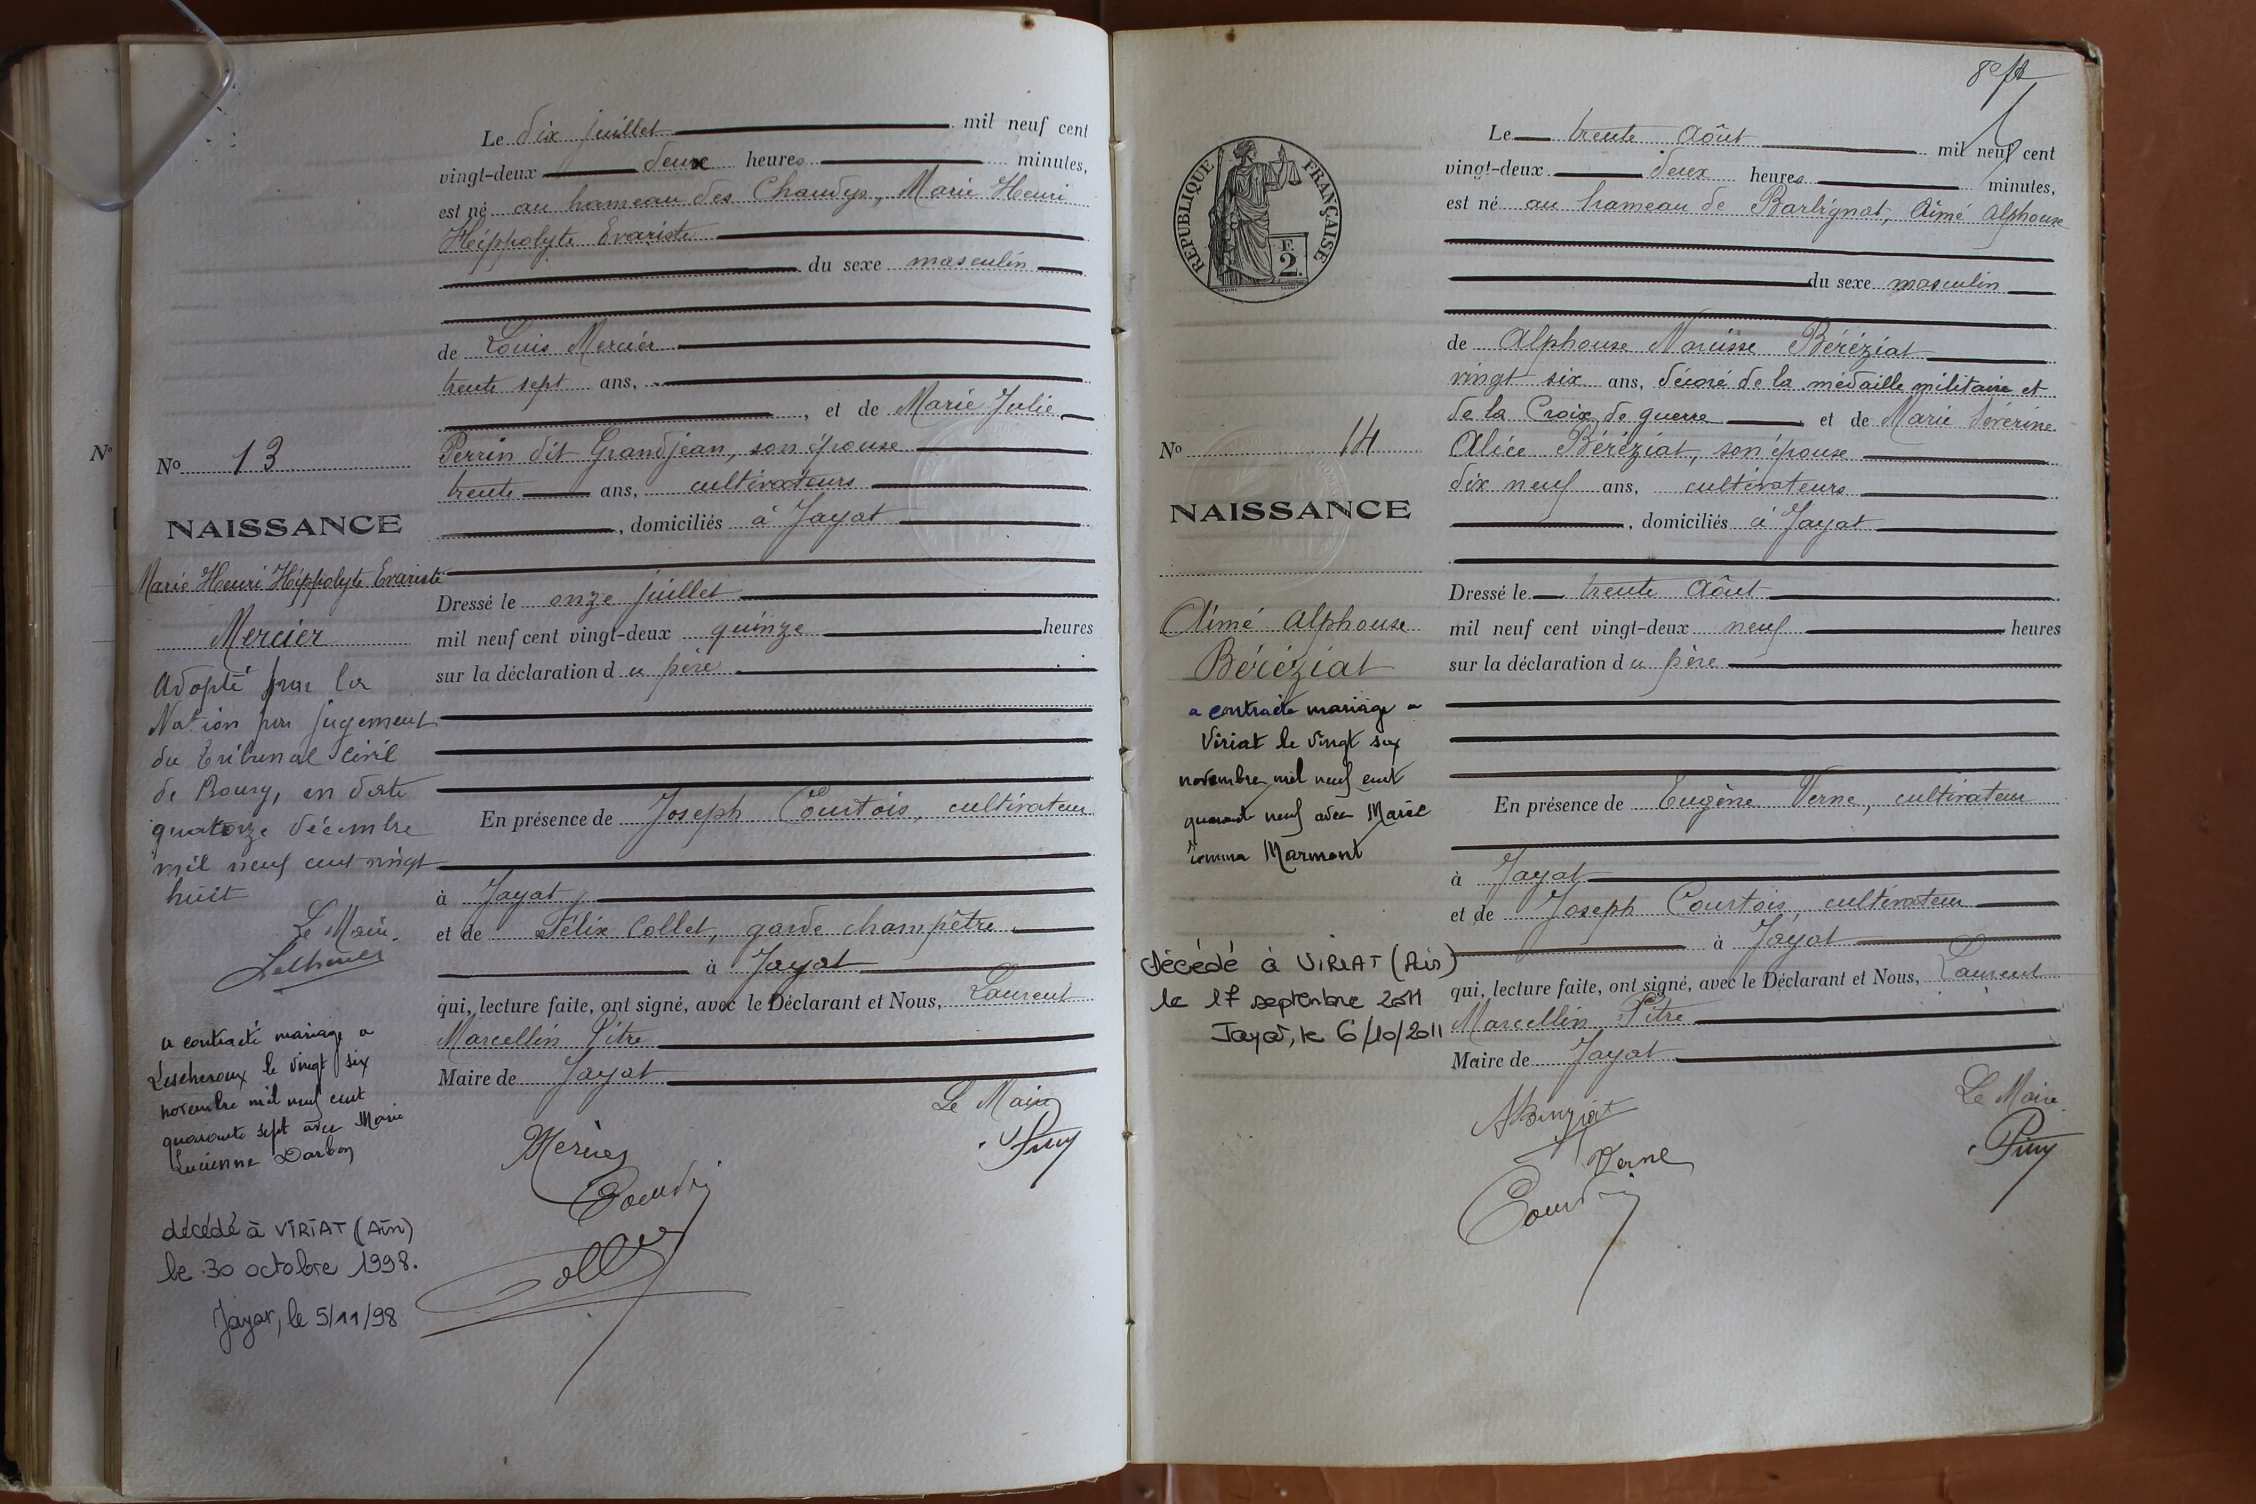 Le dix juillet mil neuf cent
vingt-deux deux heures minutes,
est né au hameau des Chaudys, Marie Henri
Hippolyte Evariste
du sexe masculin
de Louis Mercier
trente sept ans,
, et de Marie Julie
Perrin dit Grandjean, son épouse
trente ans, cultivateurs
, domiciliés à Jayat
Dressé le onze juillet
mil neuf cent vingt-deux quinze heures
sur la déclaration du père
En présence de Joseph Courtois, cultivateur
à Jayat
et de Félix Collet, garde champêtre
à Jayat
qui, lecture faite, ont signé, avec le Déclarant et Nous, Laurent
Marcellin Pitre
Maire de Jayat
Le Maire
Mercier
Collet
No
No 13
NAISSANCE
Marie Henri Hippolyte Evariste
Mercier
Adopté par la
Nation par jugement
du Tribunal Civil
de Bourg, en date
quatorze décembre
mil neuf cent vingt
huit
Le Maire.
a contracté mariage a
Lescheroux le vingt six
novembre mil neuf cent
quarante sept avec Marie
Lucienne Darbon
décédé à VIRIAT (Ain)
le 30 octobre 1998.
Jayat, le 5/11/98
REPUBLIQUE FRANÇAISE
F.
2
No 14
NAISSANCE
Aimé Alphonse
Béréziat
a contracté mariage a
Viriat le vingt six
novembre mil neuf cent
quarante neuf avec Marie
Marmont
décédé à VIRIAT (Ain)
le 17 septembre 2011
Jayat, le 6/10/2011
Le trente Août mil neuf cent
vingt-deux deux heures minutes,
est né au hameau de Barbignat, Aimé Alphonse
du sexe masculin
de Alphonse Narcisse Béréziat
vingt six ans, décoré de la médaille militaire et
de la Croix de guerre et de Marie Séverine
Alice Béréziat, son épouse
dix neuf ans, cultivateurs
, domiciliés à Jayat
Dressé le trente Août
mil neuf cent vingt-deux neuf heures
sur la déclaration du père
En présence de Eugène Verne, cultivateur
à Jayat
et de Joseph Courtois, cultivateur
à Jayat
qui, lecture faite, ont signé, avec le Déclarant et Nous, Laurent
Marcellin Pitre
Maire de Jayat
Le Maire
Verne